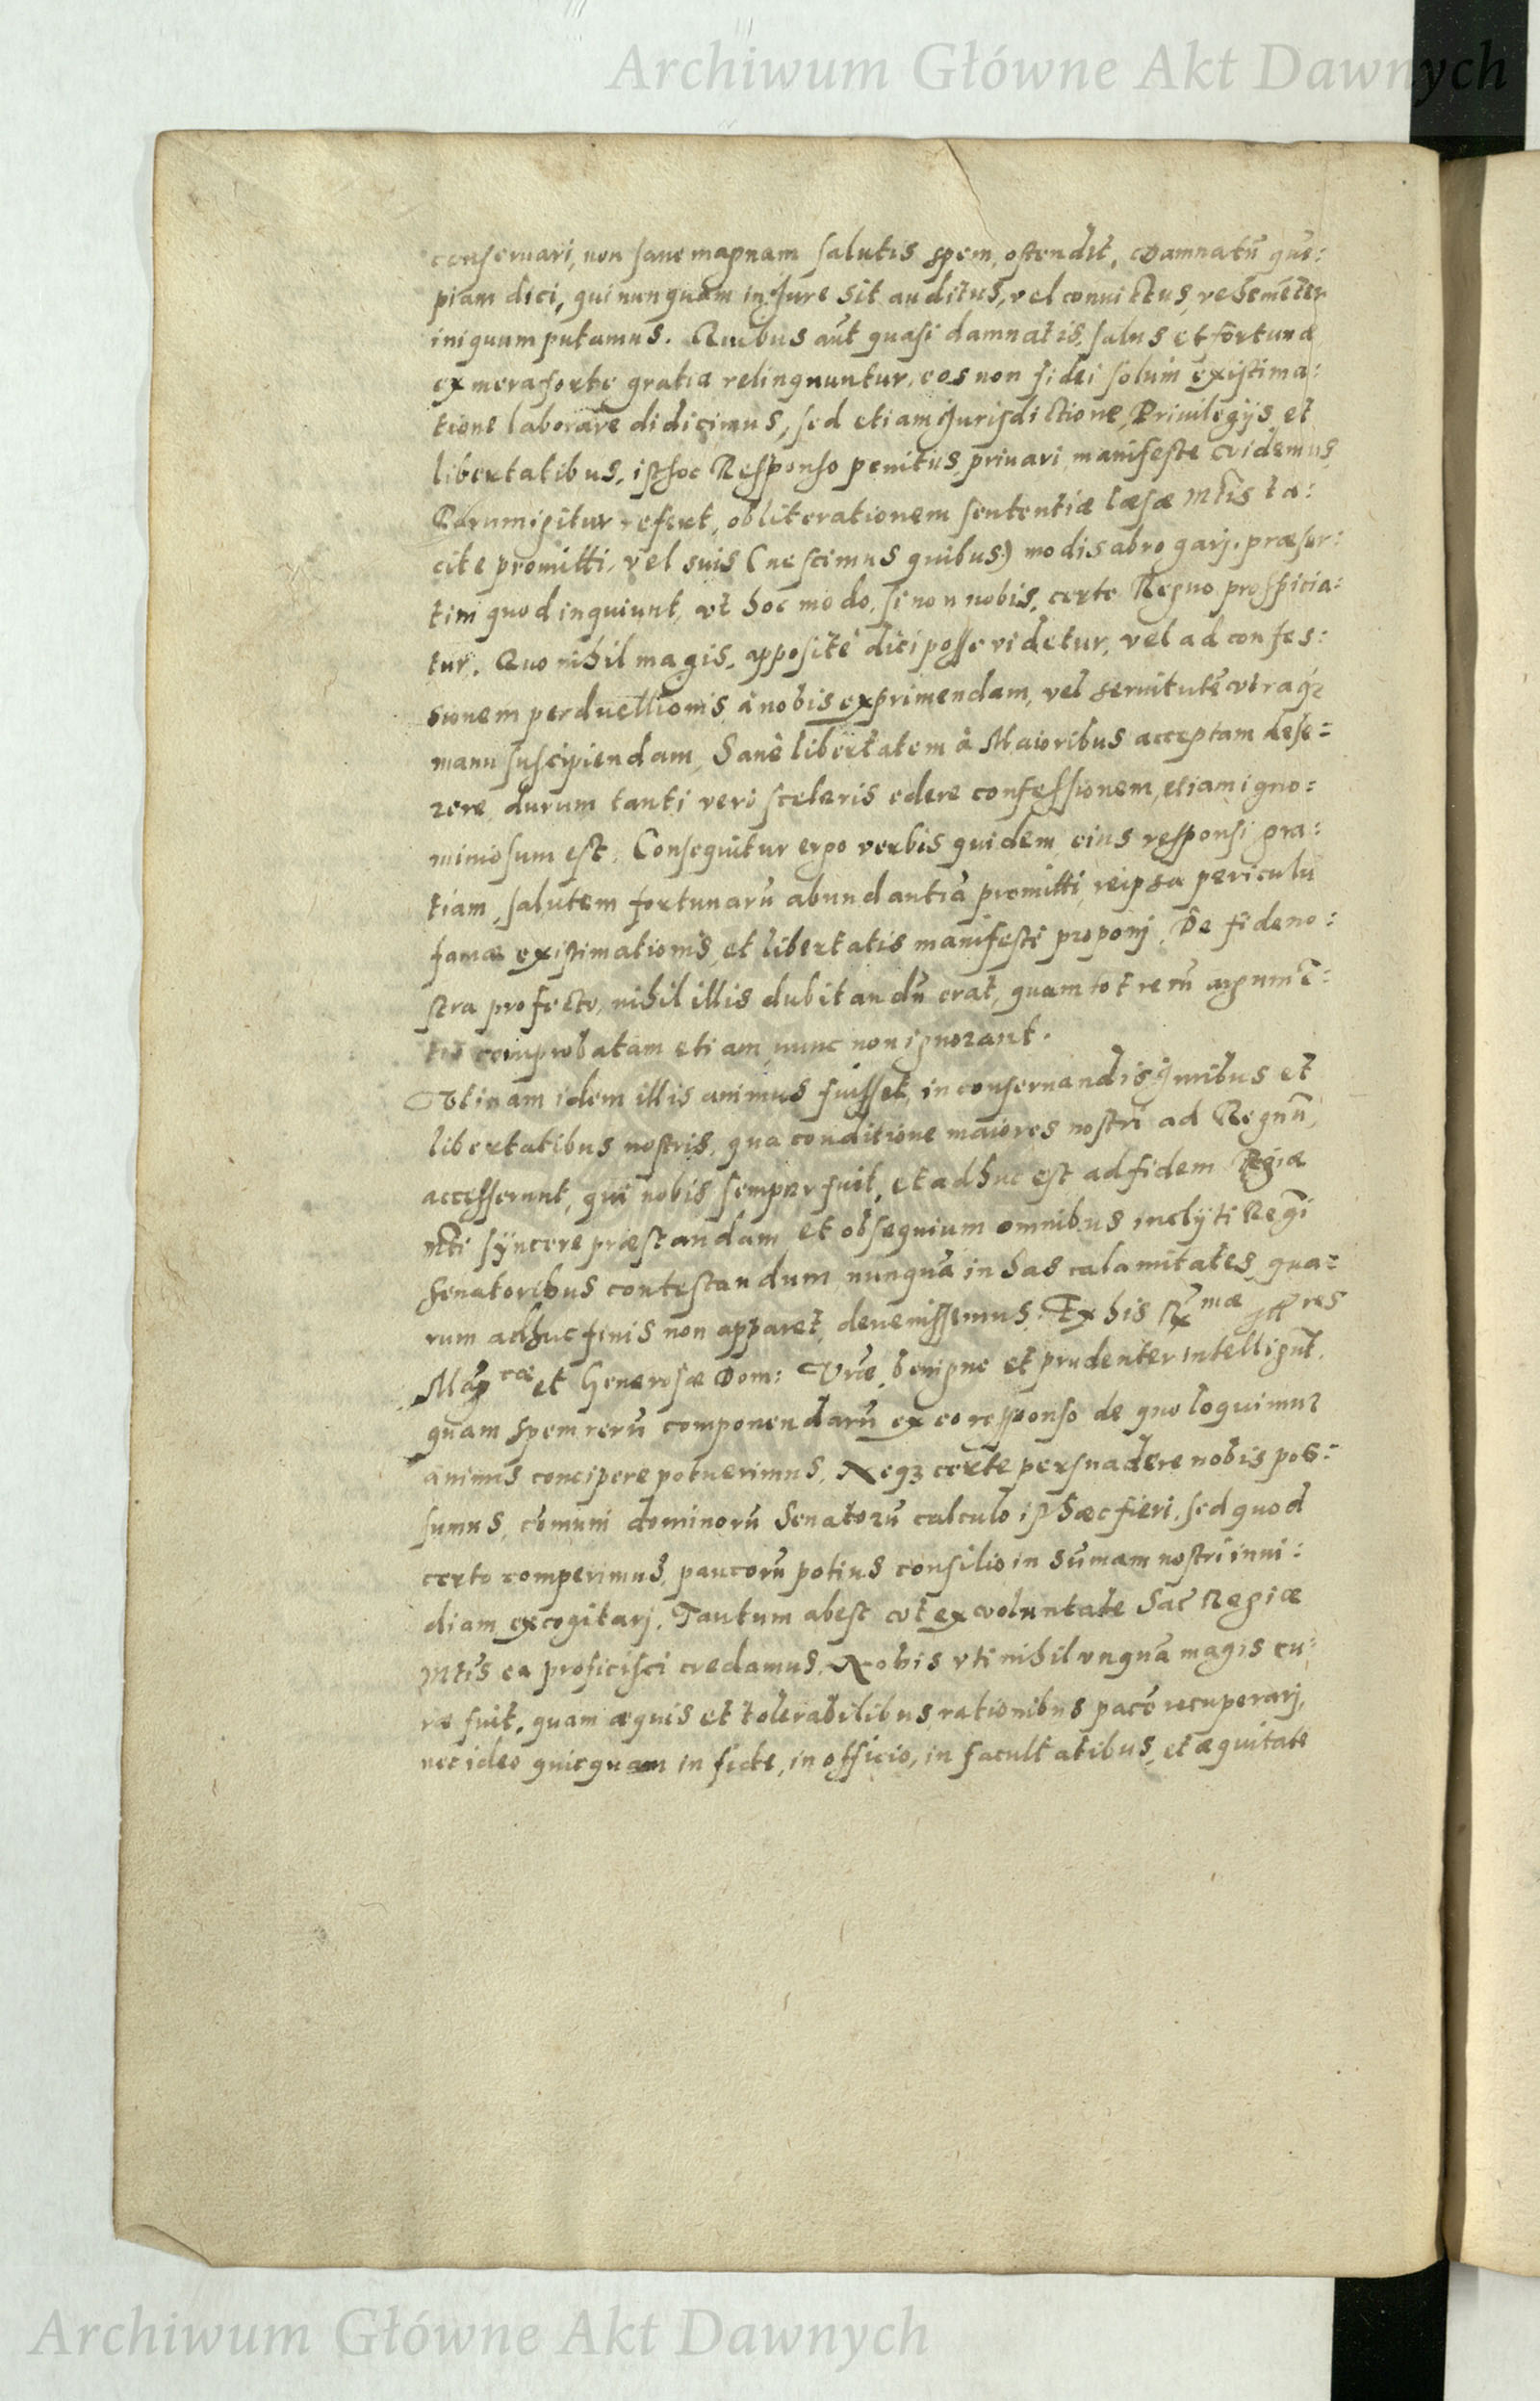 Archiwum Główne Akt Dawnych
conseruari, non sane magnam salutis spem, ostendit, Damnatū que:
piam dici, qui nunquam in Jure sit auditus, vel conuictus, vehemēter
iniquum putamus. Quibus aūt quasi damnatis, salus et fortuna
ex mera forte gratia relinquuntur, eos non fidei solum existima:
tione laborare didicimus, sed etiam Jurisdictione, Priuilegijs et
libertatibus, isthoc Responso penitus priuari manifeste videmus,
Parum igitur refert, obliterationem sententiæ læsæ Mtis ta:
cite promitti, vel suis (nescimus quibus) modis abrogarj. præser:
tim quod inquiunt, vt hoc modo, si non nobis, certe Regno prospicia:
tur. Quo nihil magis, appositè dici posse videtur, vel ad confes:
sionem perduellionis à nobis exprimendam, vel seruitutē vtraq3
manu suscipiendam, Sanè libertatem à Maioribus acceptam dese=
rere, durum tanti verò sceleris edere confessionem, etiam igno:
miniosum est. Consequitur ergo verbis quidem eius responsi gra:
tiam, salutem fortunarū abundantiā promitti, reipsa periculū
famæ existimationis, et libertatis manifestè proponj. De fide no:
stra profecto, nihil illis dubitandū erat, quam tot rerū argumē:
tis comprobatam etiam nunc non ignorant.
Vtinam idem illis animus fuisset, in conseruandis Juribus et
libertatibus nostris, qua conditione maiores nostri ad Regnū,
accesserunt, qui nobis semper fuit, et adhuc est ad fidem Regiæ
Mti syncere præstandam et obsequium omnibus inclyti Regni
Senatoribus contestandum nunquā in has calamitates, qua=
rum adhuc finis non apparet, deuenissemus. Ex his Rmæ Illres
Magcæ et Generosæ Dom: Vræ, benigne et prudenter intelligūt,
quam spem rerū componendarū ex eo responso de quo loquimur
animis concipere potuerimus, Neq3 certe persuadere nobis pos:
sumus, cōmuni dominorū Senatorū calculo isthæc fieri, sed quod
certo comperimus, paucorū potius consilio in sūmam nostri inui:
diam excogitarj. Tantum abest vt ex voluntate Sac Regiæ
Mtis ea proficisci credamus. Nobis vti nihil vnquā magis cu:
ræ fuit, quam æquis et tolerabilibus rationibus pacē recuperarj,
nec ideo quicquam in fide, in officio, in facultatibus, et æquitate
Archiwum Główne Akt Dawnych